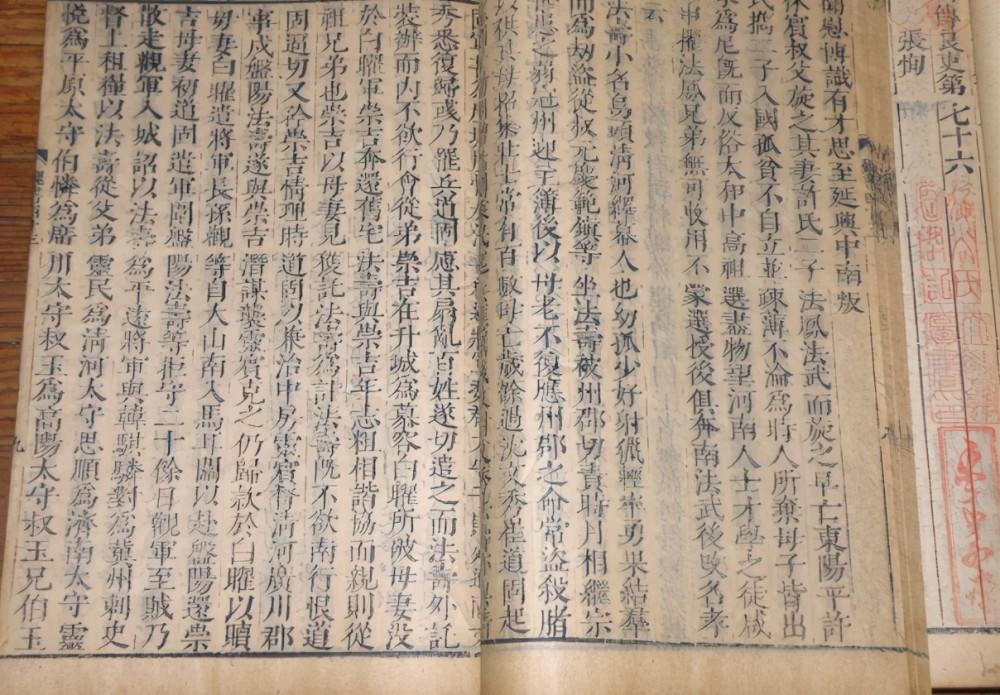 傳良吏第七十六
張恂
簡慰博識有才思至延興中南叛
休賓叔父旋之其妻許氏二子法鳳法武而旋之早亡東陽平許
氏攜二子入國孤貧不自立並疎薄不倫為時人所棄母子皆出
家為尼既而反俗太和中高祖選盡物望河南人士才學之徒咸
申擢法鳳兄弟無可收用不蒙選授後俱奔南法武後改名孝
云
法壽小名烏頭清河繹幕人也幼孤少好射獵輕率勇果結羣
而為劫盜從叔元慶範鎮等坐法壽被州郡切責時月相繼宗
甚患之弱冠州迎主簿後以母老不復應州郡之命常盜殺豬
以供其母招集壯士常有百數母亡歲餘遇沈文秀崔道固起
秀悉復歸彧乃罷兵道固慮其扇亂百姓遂切遣之而法壽外託
裝辦而內不欲行會從弟崇吉在升城為慕容白曜所破母妻沒
於白曜軍崇吉奔還舊宅法壽與崇吉年志粗相諧協而親則從
祖兄弟也崇吉以母妻見獲託法壽為計法壽既不欲南行恨道
固逼切又矜崇吉情理時道固以兼治中房靈賓督清河廣川郡
事戍盤陽法壽遂與崇吉潛謀襲靈賓克之仍歸款於白曜以贖
母妻白曜遣將軍長孫觀等自大山南入馬耳關以赴盤陽還崇
吉母妻初道固遣軍圍盤陽法壽等拒守二十餘日觀軍至賊乃
散走觀軍入城詔以法壽為平遠將軍與韓騏驎對為冀州刺史
督上租糧以法壽從父弟靈民為清河太守思順為濟南太守靈
悅為平原太守伯憐為廣川太守叔玉為高陽太守叔玉兄伯玉
九